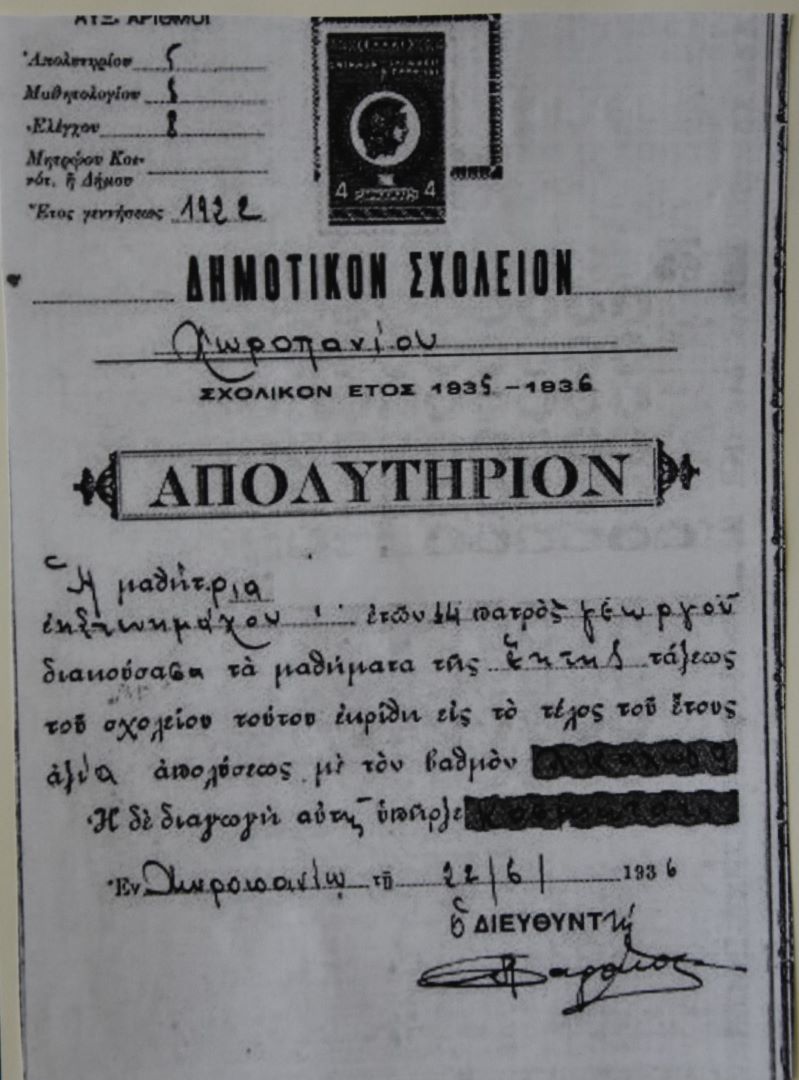 ΑΥΞ. ΑΡΙΘΜΟΙ
Ἀπολυτηρίου 5
Μαθητολογίου
Ἐλέγχου 8
Μητρῴου Κοι-
νότ. ἢ Δήμου
Ἔτος γεννήσεως 1922
4 4
ΔΗΜΟΤΙΚΟΝ ΣΧΟΛΕΙΟΝ
Χωροπανίου
ΣΧΟΛΙΚΟΝ ΕΤΟΣ 1935 - 1936
ΑΠΟΛΥΤΗΡΙΟΝ
Ἡ μαθήτρια
ἐτῶν 14 πατρὸς Γεωργίου
διακούσασα τὰ μαθήματα τῆς ἕκτης τάξεως
τοῦ σχολείου τούτου ἐκρίθη εἰς τὸ τέλος τοῦ ἔτους
ἀξία ἀπολύσεως μὲ τὸν βαθμὸν
Ἡ δὲ διαγωγὴ αὐτῆς ὑπῆρξε
Ἐν Χωροπανίῳ τῇ 22/6/ 1936
Ὁ ΔΙΕΥΘΥΝΤής